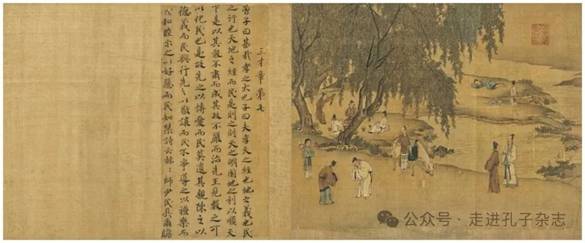 三才章第七
曾子曰甚哉孝之大也子曰夫孝天之經也地之義也民
之行也天地之經而民是則之則天之明因地之利以順天
下是以其教不肅而成其政不嚴而治先王見教之可
以化民也是故先之以博愛而民莫遺其親陳之以
德義而民興行先之以敬讓而民不爭導之以禮樂而
民和睦示之以好惡而民知禁詩云赫〻師尹民具爾瞻
公众号·走进孔子杂志